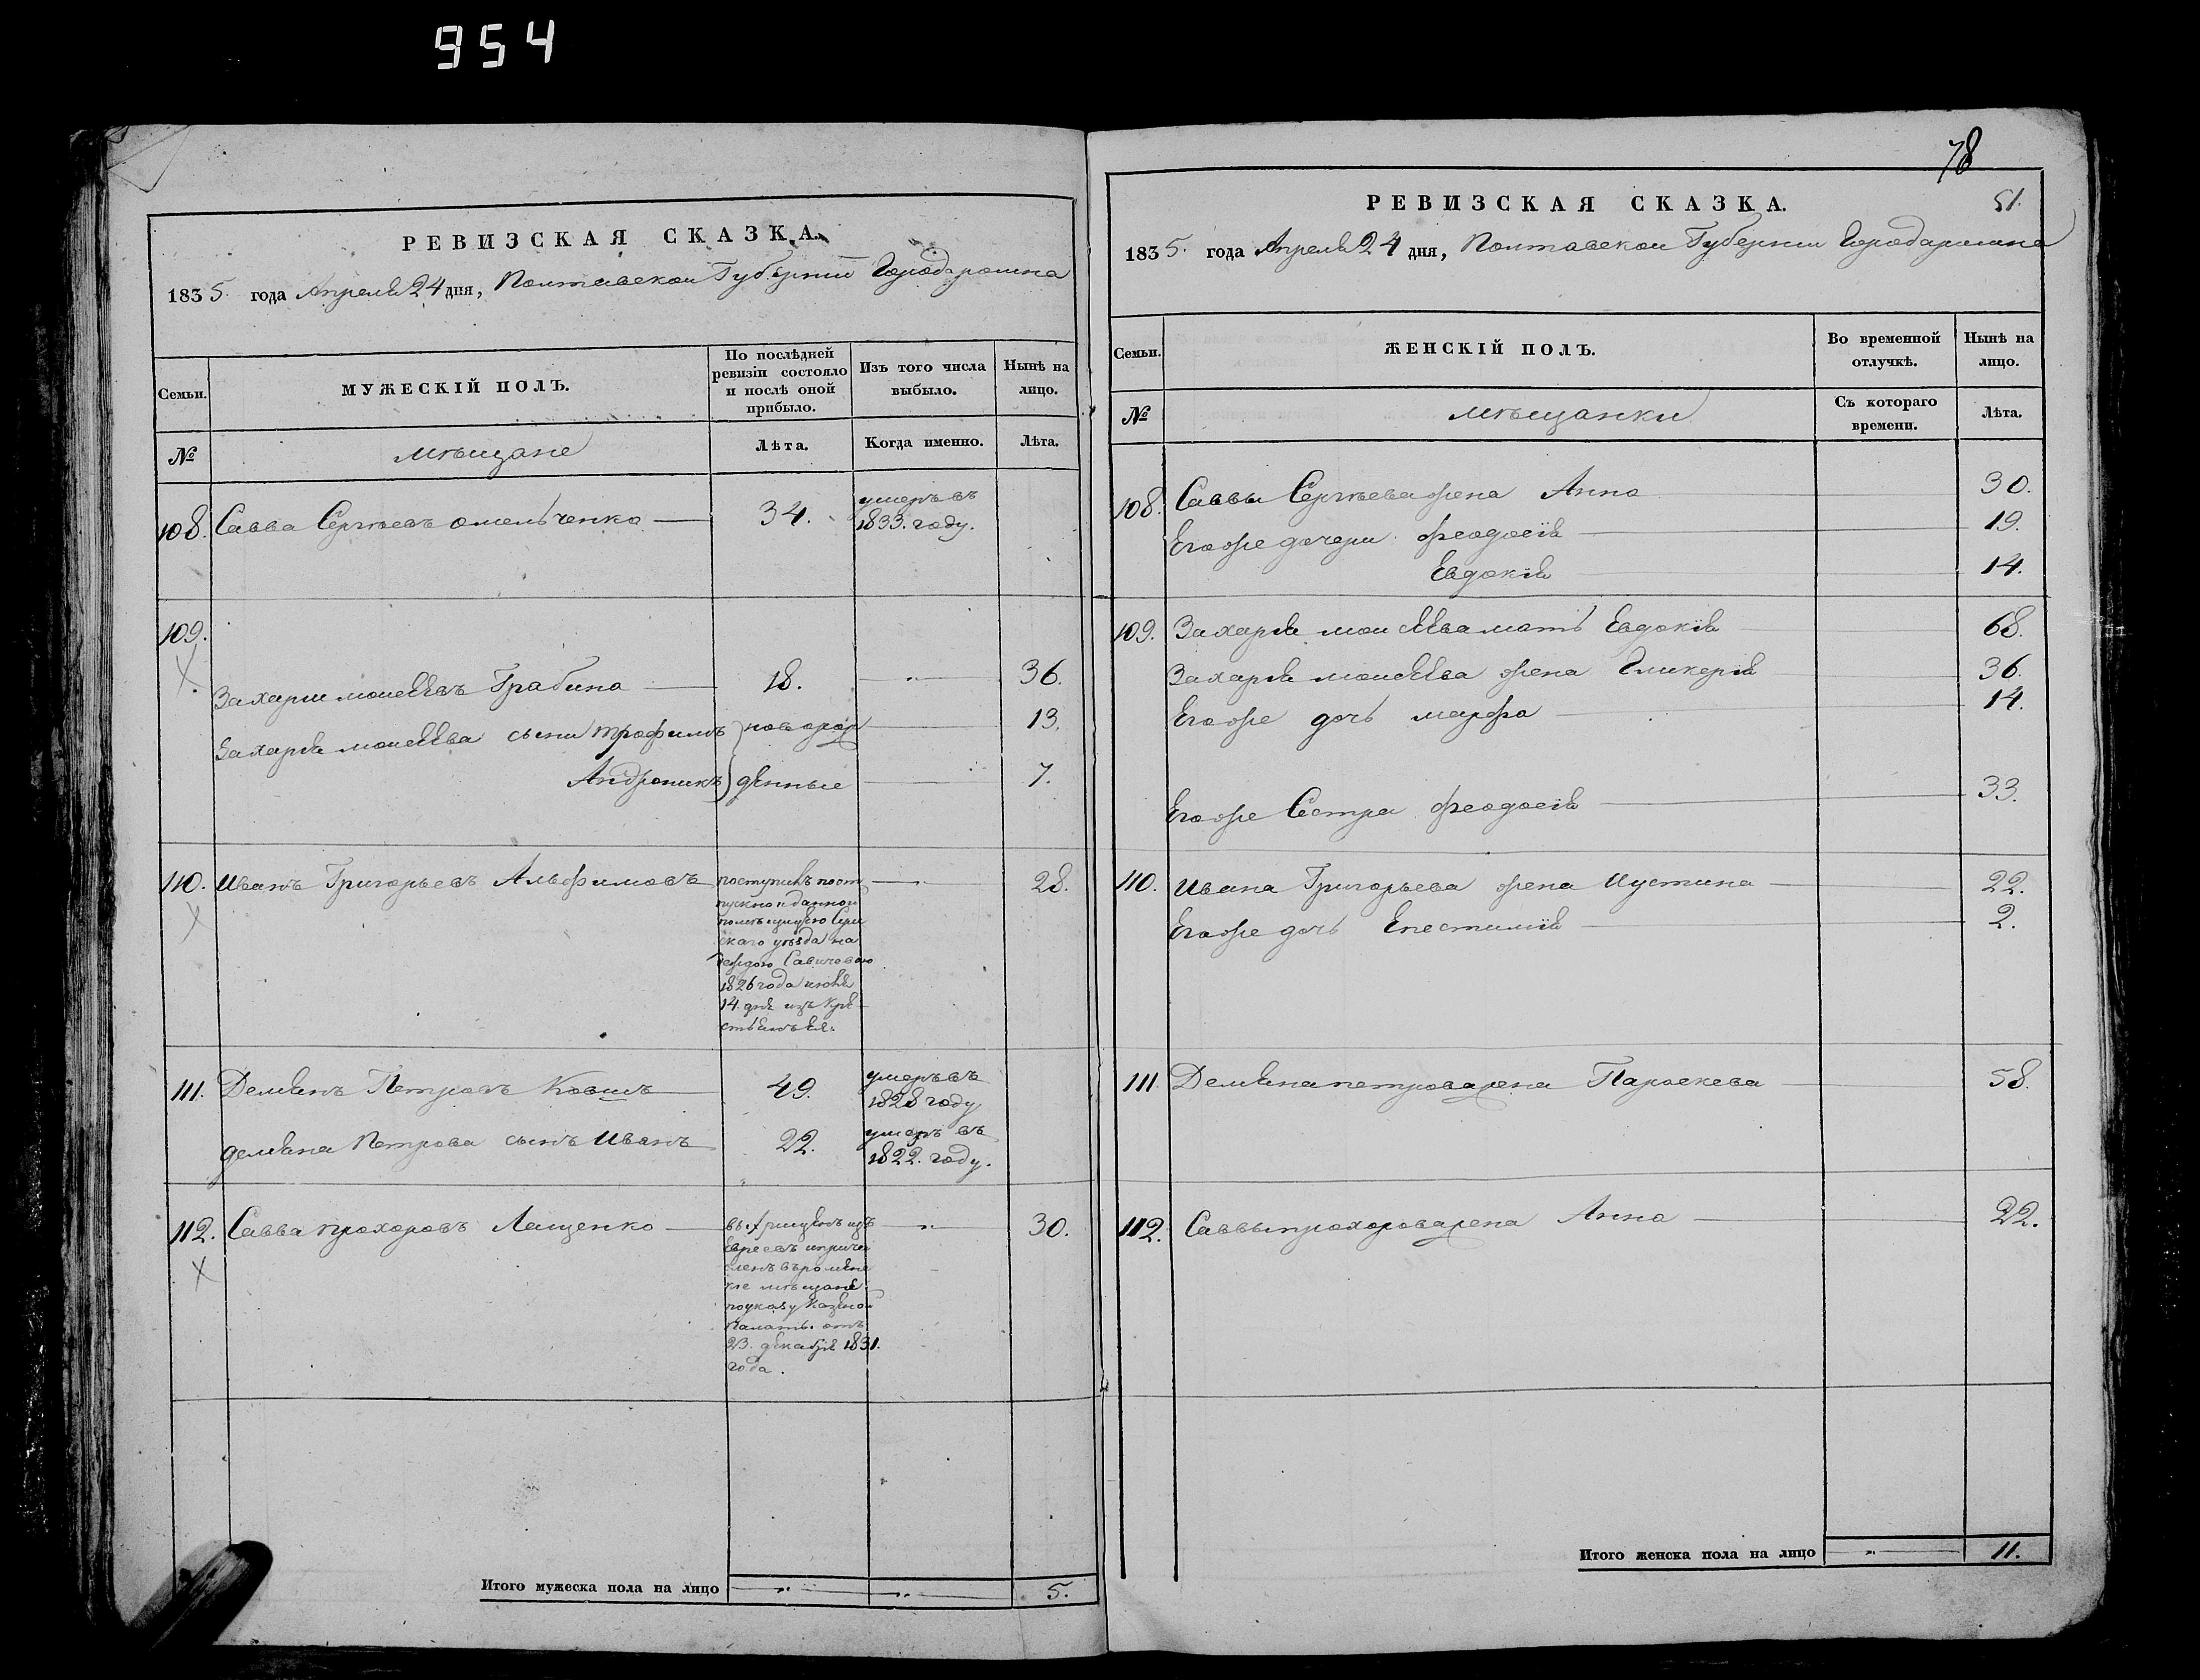 954
РЕВИЗСКАЯ СКАЗКА.
1835. года Апреля 24 дня, Полтавской Губернии Города Ромна
Семьи.
МУЖЕСКІЙ ПОЛЪ.
По послѣдней ревизіи состояло и послѣ оной прибыло.
Изъ того числа выбыло.
Нынѣ на лицо.
№
мѣщане
Лѣта.
Когда именно.
Лѣта.
108. Савва Сергѣевъ Омельченко 34. умеръ въ
1833. году.
109.
Захарій Моисѣевъ Грабина 18. 36.
Захарія Моисѣева сыны Трофимъ новорож 13.
Андроникъ денные 7.
110. Иванъ Григорьевъ Альфимовъ поступилъ по от 28.
пускной данной
помѣщицею
скаго уѣзда На
деждою Савичевою
1826 года июня
14 дня изъ кре
стьянъ ея.
111. Демянъ Петровъ Ковшъ 49. умеръ въ
1828 году
Демяна Петрова сынъ Иванъ 22. умеръ въ
1822. году.
112. Савва Прохоровъ Лященко выхрищенъ изъ 30.
Евреевъ и причи
сленъ въ роменс
кіе мѣщане
по указу Казеной
Палаты отъ
23. декабря 1831.
года.
Итого мужеска пола на лицо 5.
78
РЕВИЗСКАЯ СКАЗКА. 51.
1835. года Апреля 24 дня, Полтавской Губернии Города Ромна
Семьи.
ЖЕНСКІЙ ПОЛЪ.
Во временной отлучкѣ.
Нынѣ на лицо.
№
мѣщанки
Съ котораго времени.
Лѣта.
108. Саввы Сергѣева жена Анна 30.
Его же дочери Феодосія 19.
Евдокія 14.
109. Захарія Моисѣева мать Евдокія 68.
Захарія Моисѣева жена Гликерія 36.
Его же дочь Марфа 14.
Его же Сестра Феодосія 33.
110. Ивана Григорьева жена Иустина 22.
Его же дочь Епестимія 2.
111. Демяна Петрова жена Параскева 58.
112. Саввы Прохорова жена Анна 22.
Итого женска пола на лицо 11.